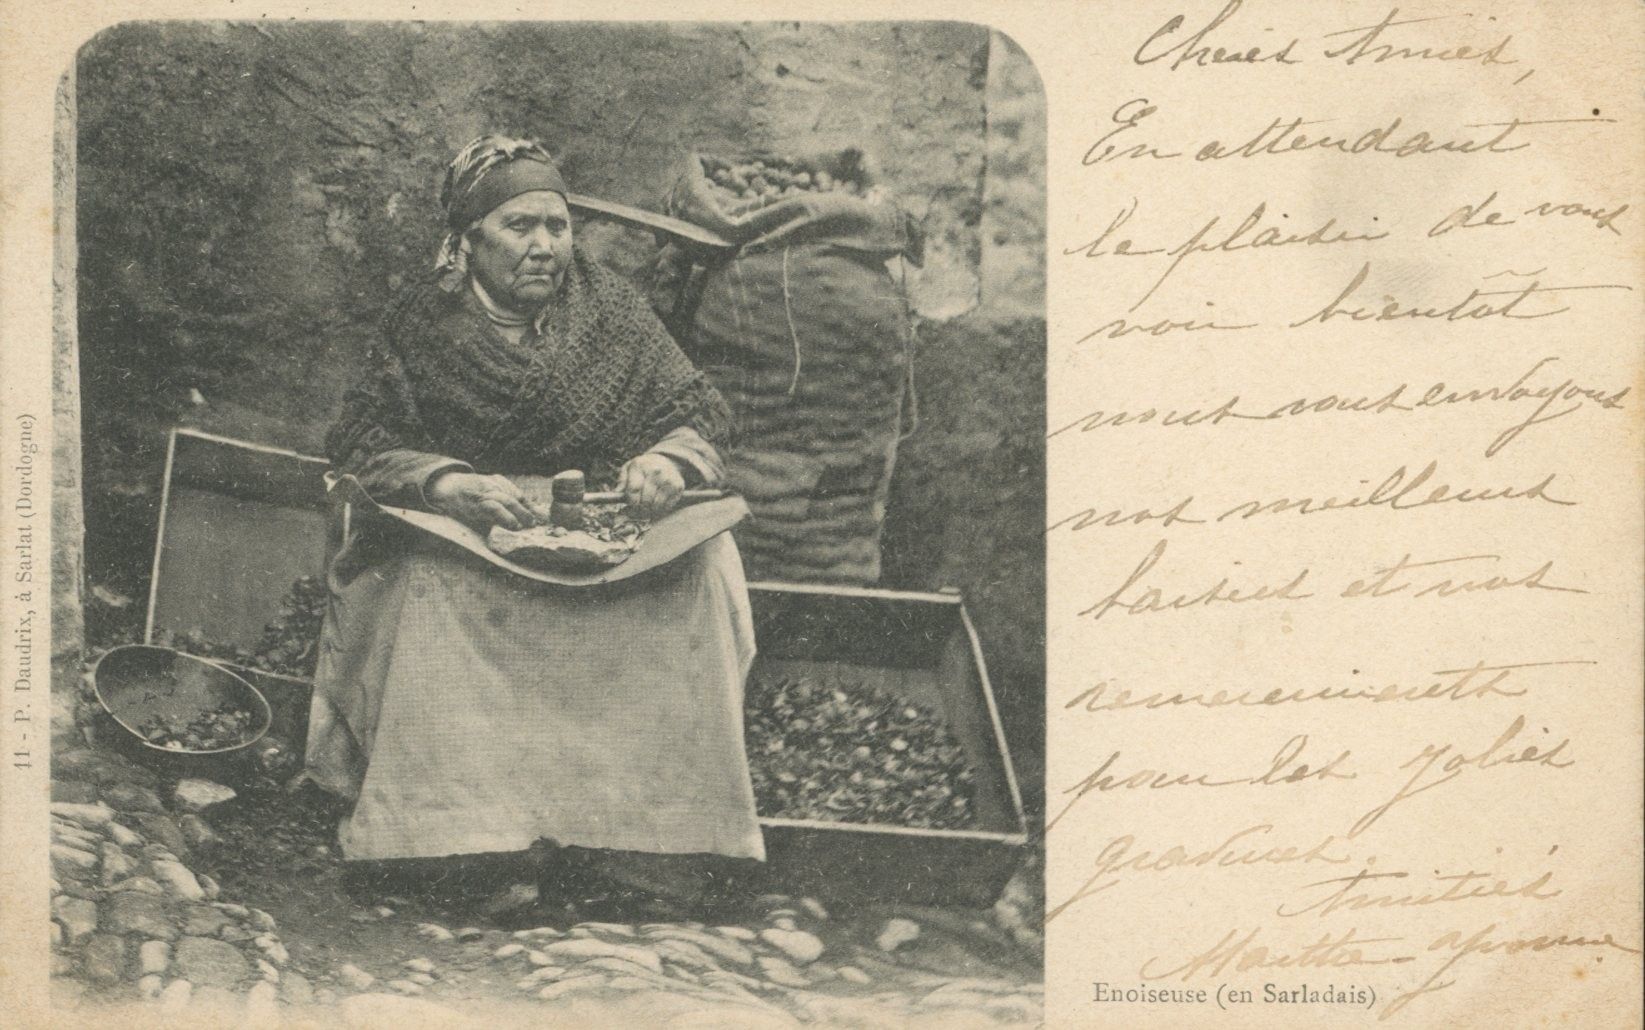 Chères Amies,
En attendant
le plaisir de vous
voir bientôt
nous vous envoyons
nos meilleurs
baisers et nos
remerciements
pour les jolies
gravures.
Amitiés
Marthe - Yvonne
Enoiseuse (en Sarladais)
11 - P. Daudrix, à Sarlat (Dordogne)